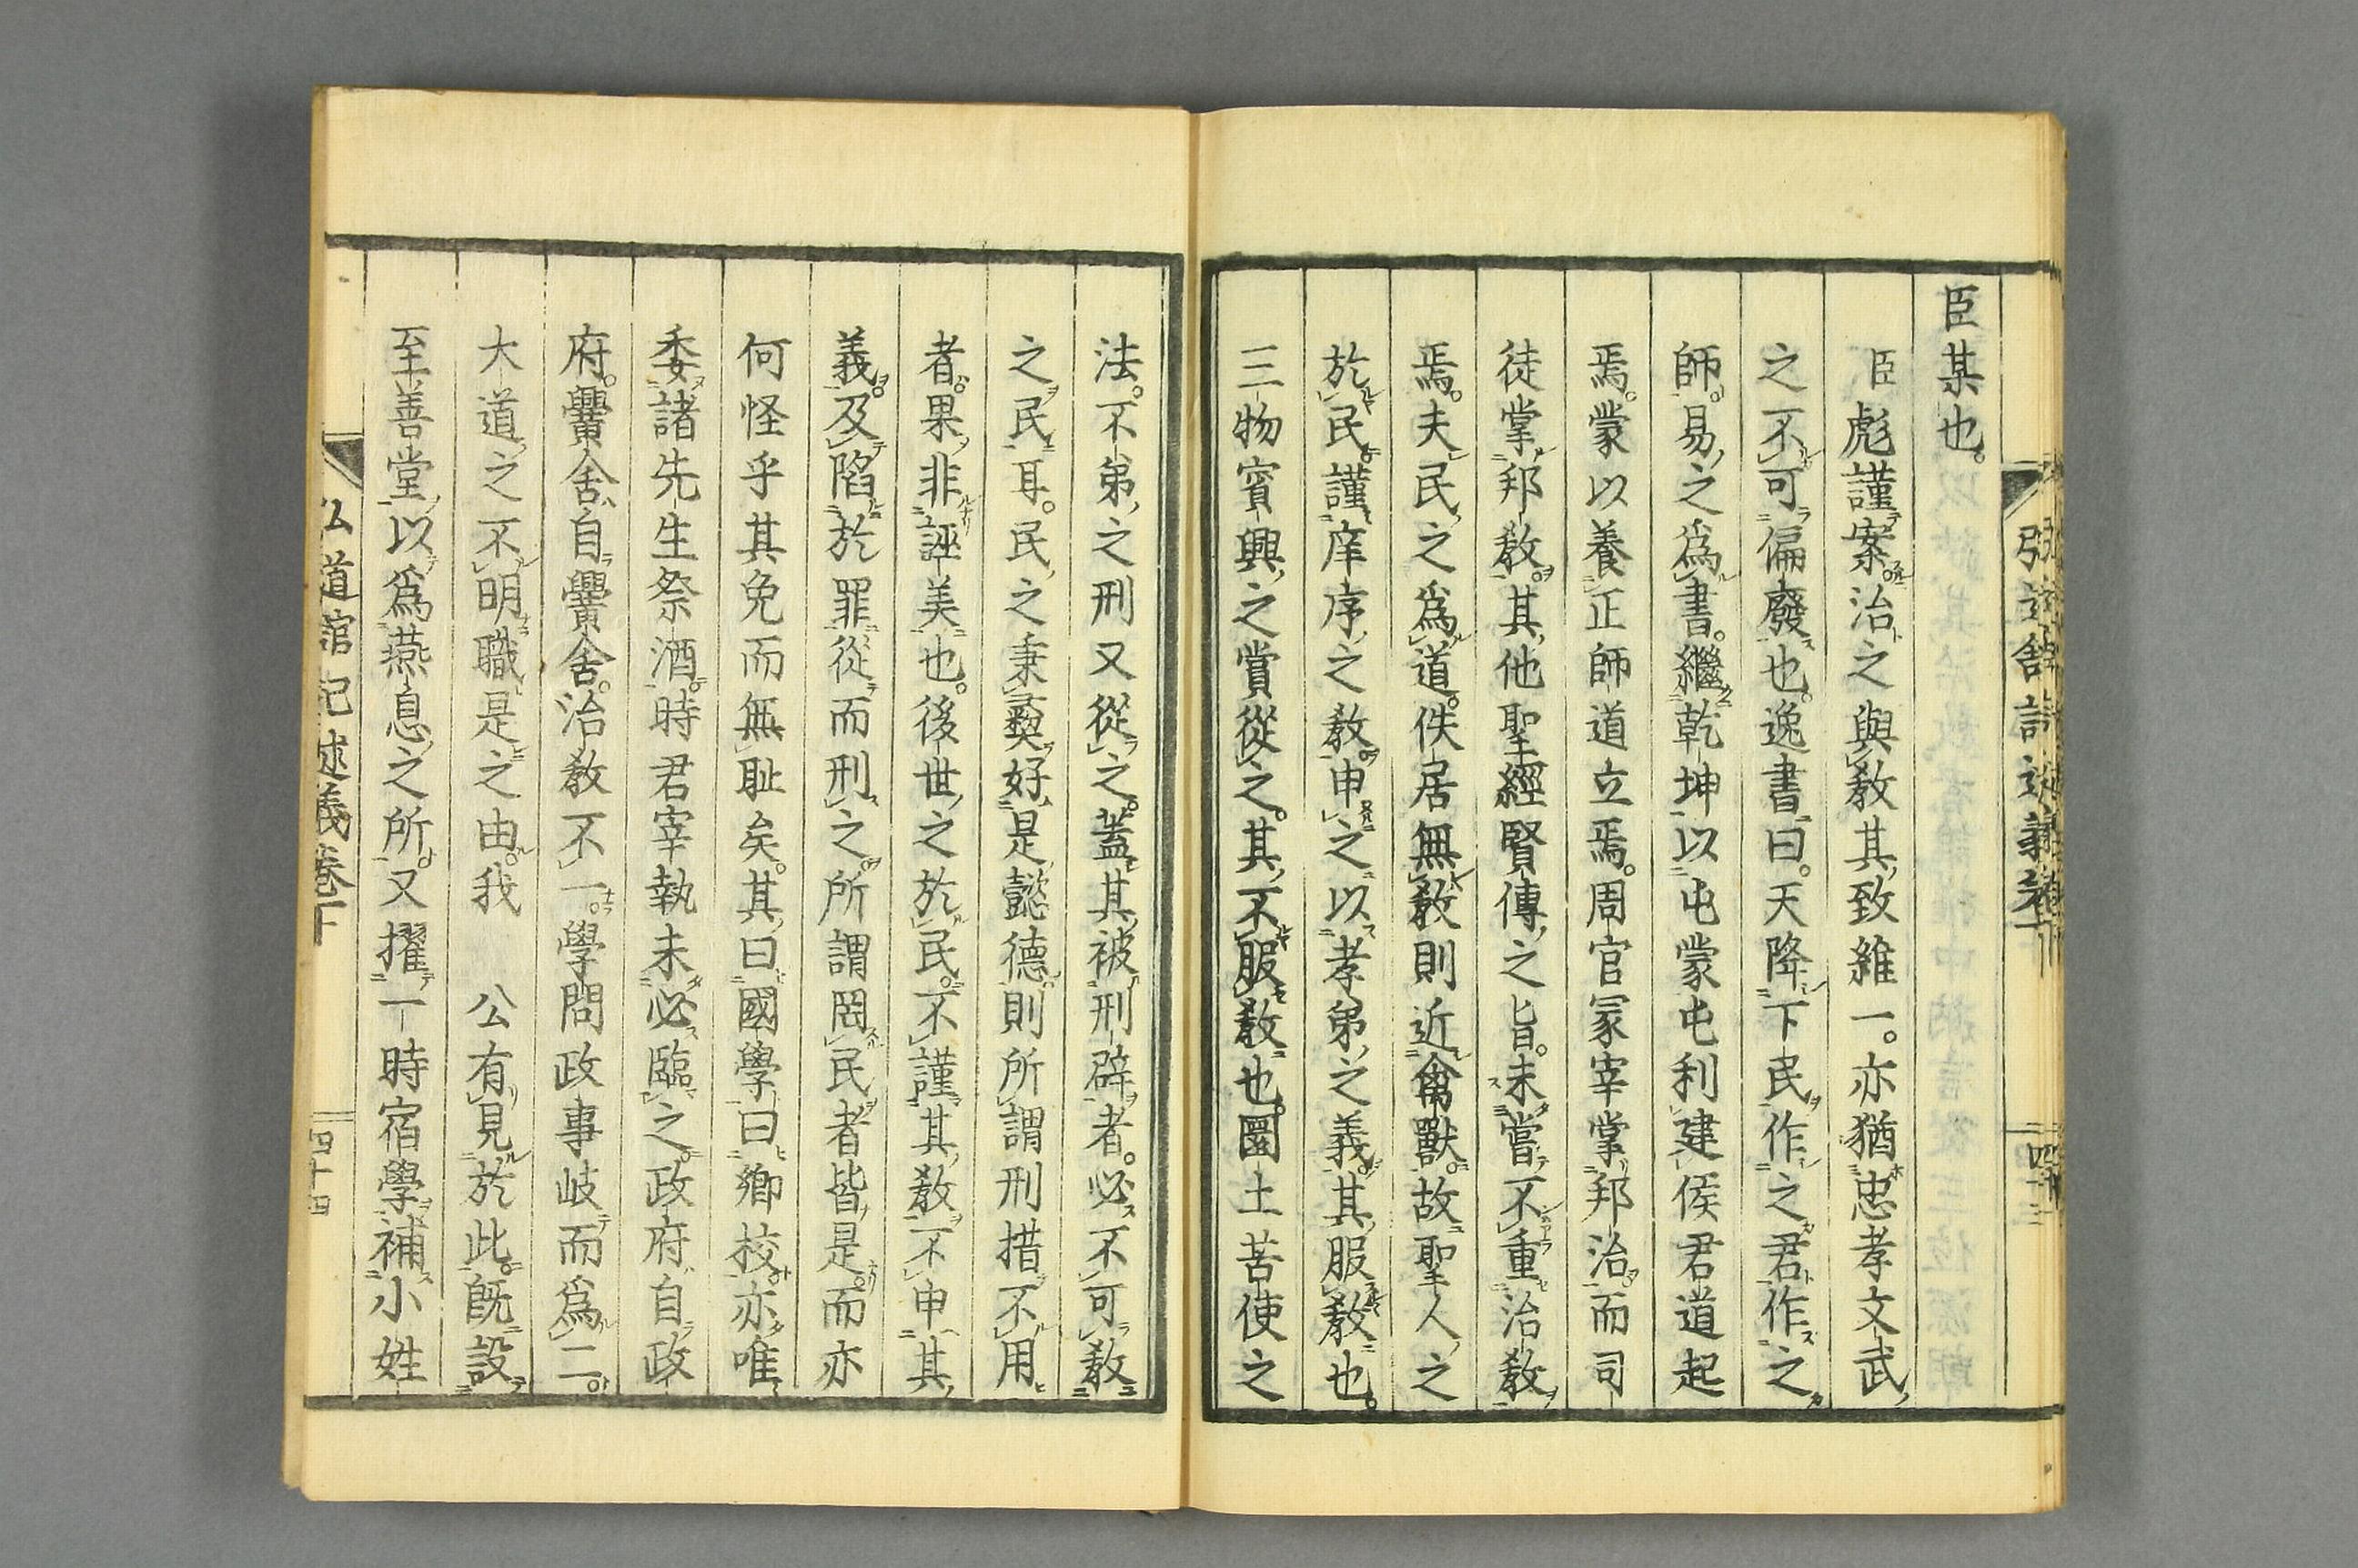 臣某也。
臣彪謹案。治之與教其致維一。亦猶忠孝文武
之不可偏廢也。逸書曰。天降下民作之君作之
師。易之爲書。繼乾坤以屯蒙屯利建侯君道起
焉。蒙以養正師道立焉。周官冢宰掌邦治。而司
徒掌邦教。其他聖經賢傳之旨。未嘗不重治教
焉。夫民之爲道。佚居無教則近禽獸。故聖人之
於民謹庠序之教。申之以孝弟之義。其服教也。
三物賓興之賞從之。其不服教也。圜土苦使之
法。不弟之刑又從之。蓋其被刑辟者。必不可教
之民耳。民之秉彜好是懿德則所謂刑措不用
者。果非誣美也。後世之於民。不謹其教不申其
義。及陷於罪從而刑之。所謂罔民者皆是。而亦
何怪乎其免而無耻矣。其曰國學曰鄉校。亦唯
委諸先生祭酒。時君宰執未必臨之。政府自政
府。黌舍自黌舍。治教不一。學問政事岐而爲二。
大道之不明職是之由。我 公有見於此。既設
至善堂以爲燕息之所。又擢一時宿學補小姓
弘道館記述義卷下
四十四